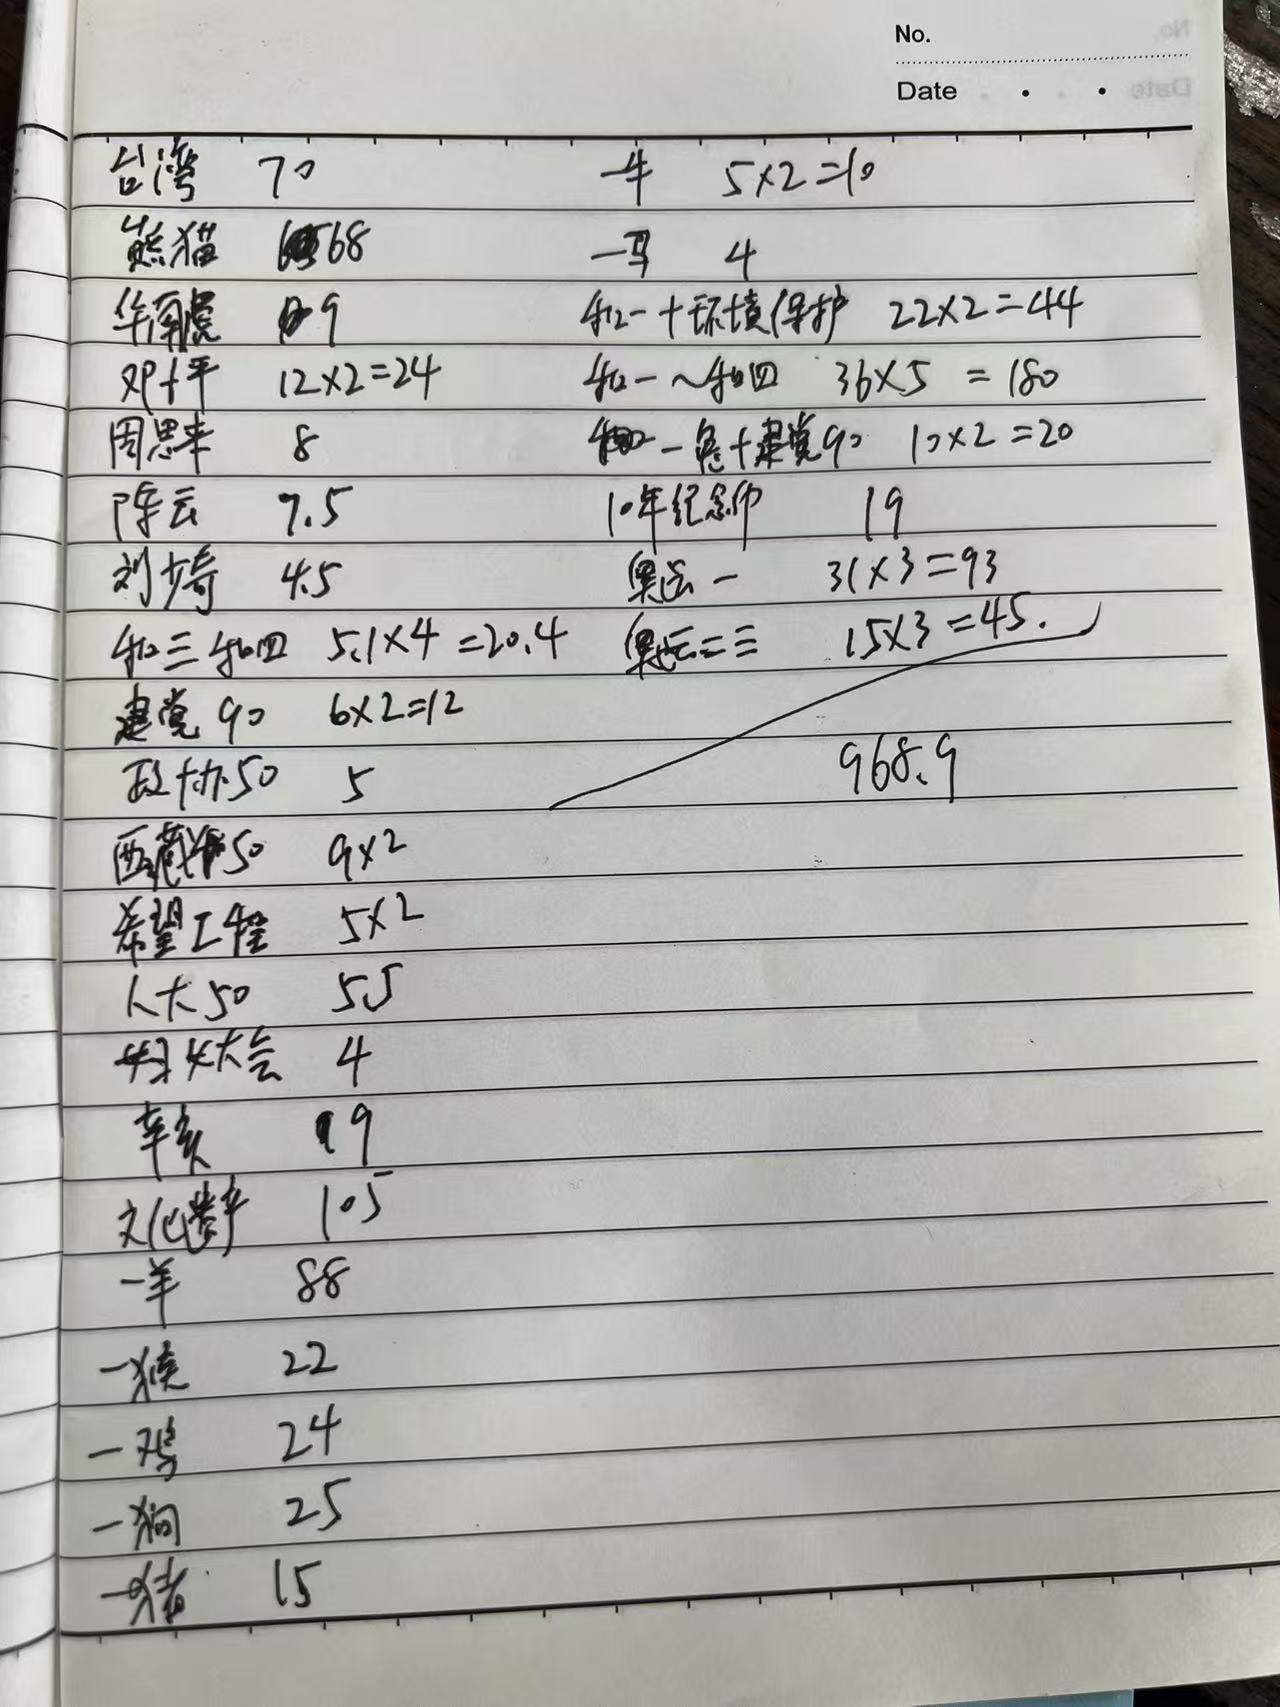 No.
Date
台湾 70
熊猫 68
华南虎 9
邓小平 12×2=24
周恩来 8
陈云 7.5
刘少奇 4.5
和三和四 5.1×4=20.4
建党90 6×2=12
政协50 5
西藏50 9×2
希望工程 5×2
人大50 55
妇女大会 4
辛亥 9
文化遗产 105
一羊 88
一猴 22
一鸡 24
一狗 25
一猪 15
一牛 5×2=10
一马 4
和一十环境保护 22×2=44
和一~和四 36×5=180
和一 十建党90 10×2=20
10年纪念币 19
奥运一 31×3=93
奥运二三 15×3=45.
968.9